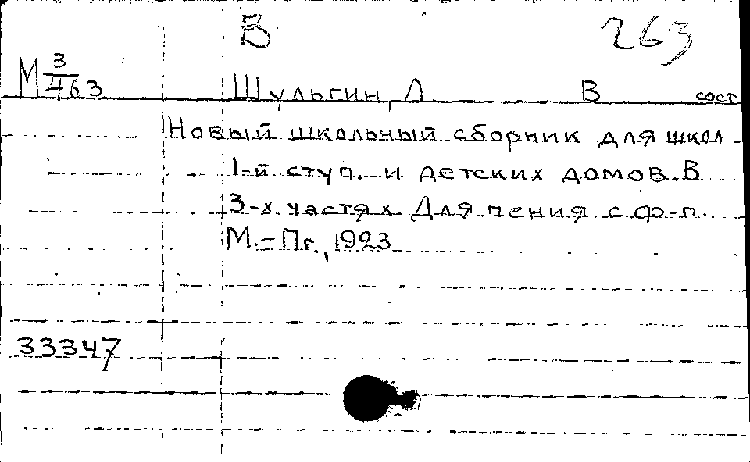 В 263
М 3/463
Шульгин, Л В сост
Новый школьный сборник для школ
1-й ступ. и детских домов. В
3-х частях Для пения с ф-п.
М.-Пг., 1923
33347